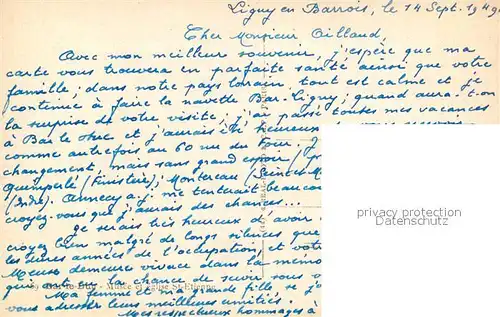 Ligny en Barrois, le 14 Sept. 1949
Cher Monsieur Aillaud,
Avec mon meilleur souvenir, j'espère que ma
carte vous trouvera en parfaite santé ainsi que votre
famille; dans notre pays lorrain tout est calme et je
continue à faire la navette Bar-Ligny; quand aura-t-on
la surprise de votre visite; j'ai passé toutes mes vacances
à Bar le Duc et j'aurais été heureux
comme autrefois au 60 rue du Four.
changement, mais sans grand espoir
Quimperlé (Finistère); Montereau (Seine et M
(Indre). Annecy a.j. me tenterait beaucou
croyez-vous que j'aurais des chances...
Je serais très heureux d'avoir
croyez bien malgré de longs silences que
les dures années de l'occupation, et vot
Meuse demeure vivace dans la mémo
qui ont eu la chance de servir sous v
Bar-le-Duc - Musée et Eglise St-Etienne
Ma femme et ma grande fille se j
vous adresser leurs meilleures amitiés.
Mes respectueux hommages à
protected by copyright